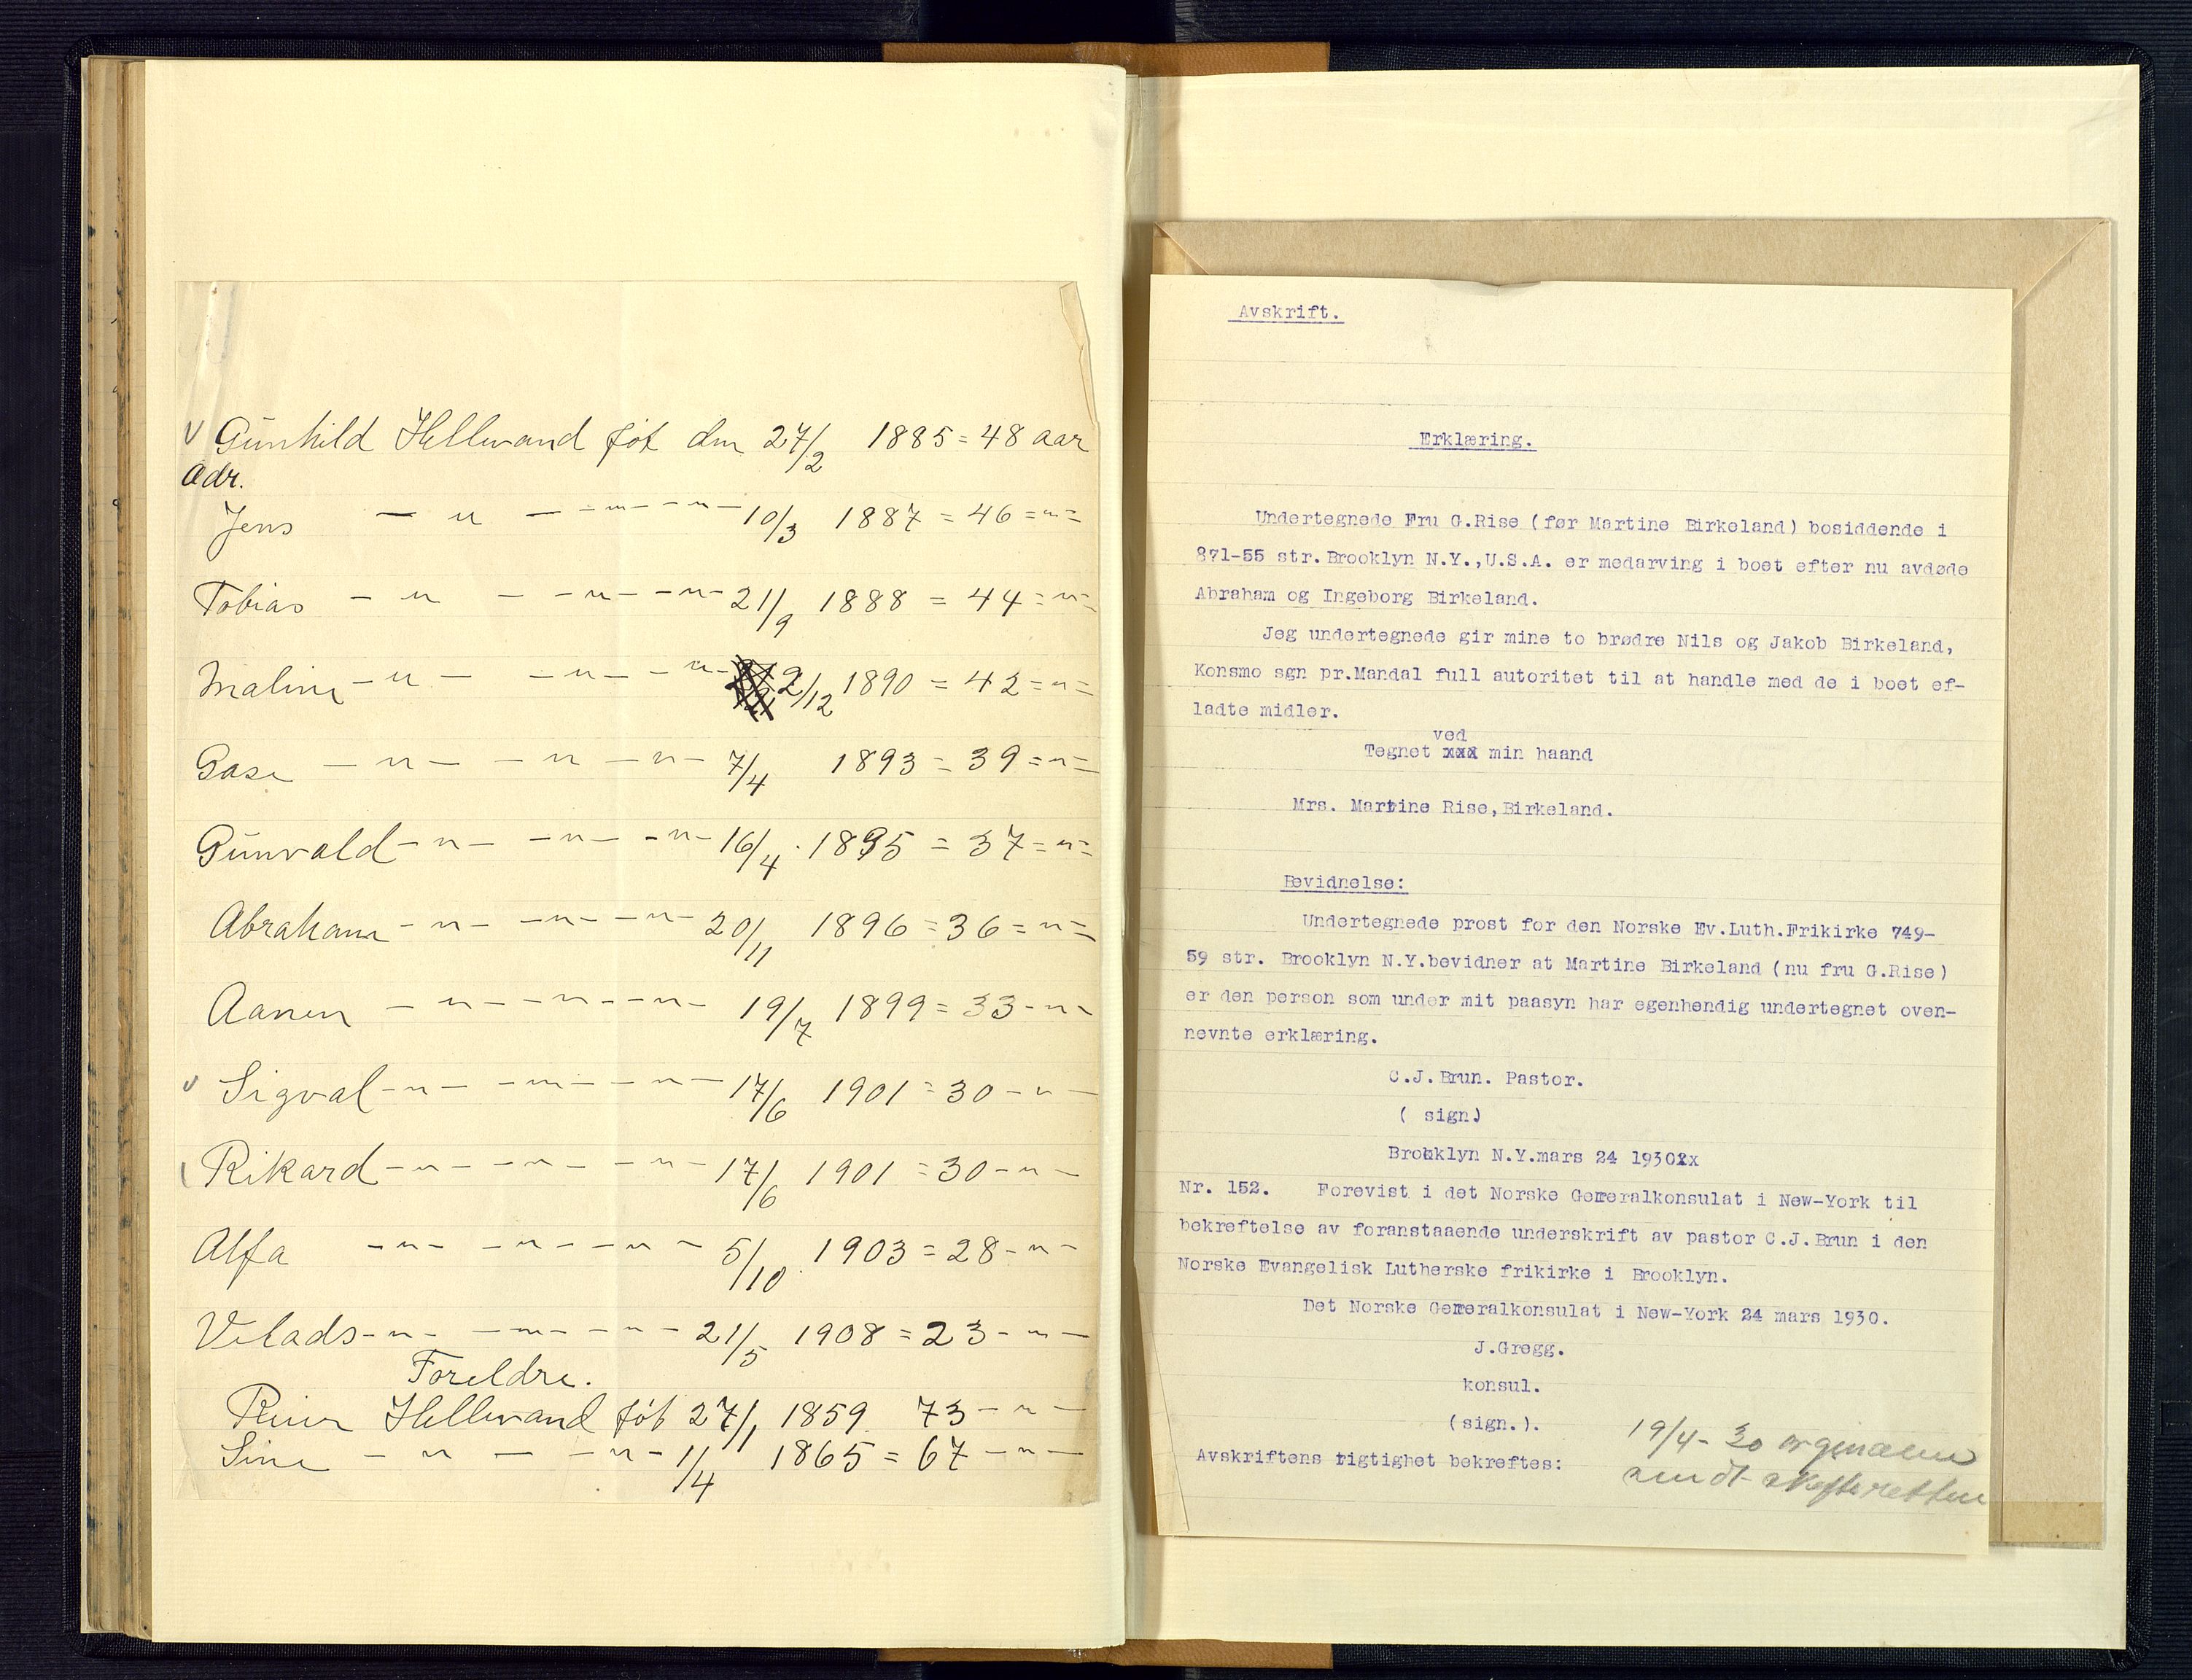 V Gunhild Hellevand føt den 27/2 1885 = 48 aar
Adr.
Jens — " — — " — — " — 10/3 1887 = 46 = " =
Tobias — " — — " — — " — 21/9 1888 = 44 = " =
Maline — " — — " — — " — 2/12 1890 = 42 = " =
Gase — " — — " — — " — 7/4 1893 = 39 = " =
Gunvald — " — — " — — " — 16/4 1895 = 37 = " =
Abraham — " — — " — — " — 20/11 1896 = 36 = " =
Aanen — " — — " — — " — 19/7 1899 = 33 - " -
v Sigval — " — — " — — " — 17/6 1901 = 30 - " -
Rikard — " — — " — — " — 17/6 1901 = 30 - " -
Alfa — " — — " — — " — 5/10 1903 = 28 - " -
Vilads — " — — " — — " — 21/5 1908 = 23 - " -
Foreldre.
Reier Hellevand føt 27/1 1859 73 - " -
Sine — " — — " — 1/4 1865 = 67 - " -
Avskrift.
Erklæring.
Undertegnede Fru G.Rise (før Martine Birkeland) bosiddende i
871-55 str. Brooklyn N.Y.,U.S.A. er medarving i boet efter nu avdøde
Abraham og Ingeborg Birkeland.
Jeg undertegnede gir mine to brødre Nils og Jakob Birkeland,
Konsmo sgn pr.Mandal full autoritet til at handle med de i boet ef-
ladte midler.
ved
Tegnet xxx min haand
Mrs. Martine Rise,Birkeland.
Bevidnelse:
Undertegnede prost for den Norske Ev.Luth.Frikirke 749-
59 str. Brooklyn N.Y.bevidner at Martine Birkeland (nu fru G.Rise)
er den person som under mit paasyn har egenhendig undertegnet oven-
nevnte erklæring.
C.J.Brun. Pastor.
( sign.)
Brooklyn N.Y.mars 24 1930xx
Nr. 152. Forevist i det Norske Generalkonsulat i New-York til
bekreftelse av foranstaaende underskrift av pastor C.J.Brun i den
Norske Evangelisk Lutherske frikirke i Brooklyn.
Det Norske Generalkonsulat i New-York 24 mars 1930.
J.Gregg.
konsul.
(sign.).
19/4 - 30
Avskriftens rigtighet bekreftes:
sendt skifteretten